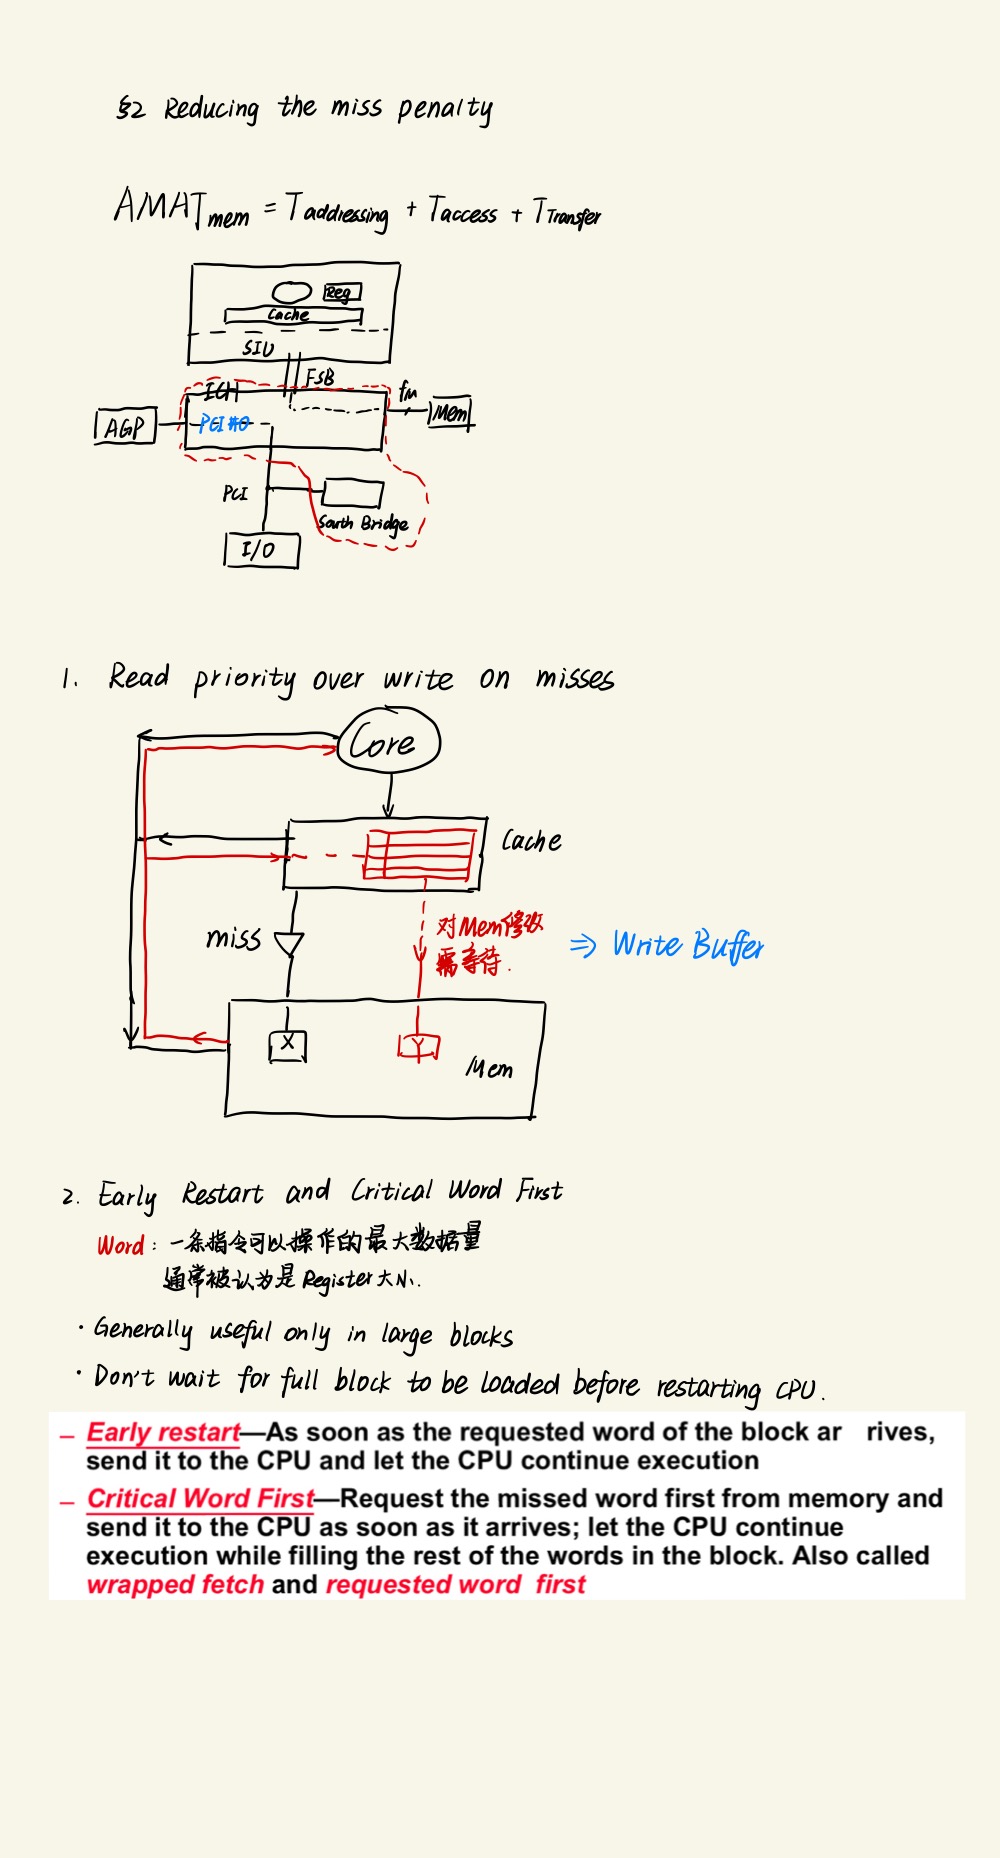 §2 Reducing the miss penalty
AMAT mem = T addressing + Taccess + T Transfer
Reg
Cache
SIU
FSB
ICH
fm
Mem
AGP
PCI #0
PCI
South Bridge
I/O
1. Read priority over write on misses
Core
Cache
miss
对Mem修改
需等待.
⇒ Write Buffer
X
Y
Mem
2. Early Restart and Critical Word First
Word: 一条指令可以操作的最大数据量
通常被认为是Register大小.
· Generally useful only in large blocks
· Don't wait for full block to be loaded before restarting CPU.
– Early restart—As soon as the requested word of the block ar rives,
send it to the CPU and let the CPU continue execution
– Critical Word First—Request the missed word first from memory and
send it to the CPU as soon as it arrives; let the CPU continue
execution while filling the rest of the words in the block. Also called
wrapped fetch and requested word first